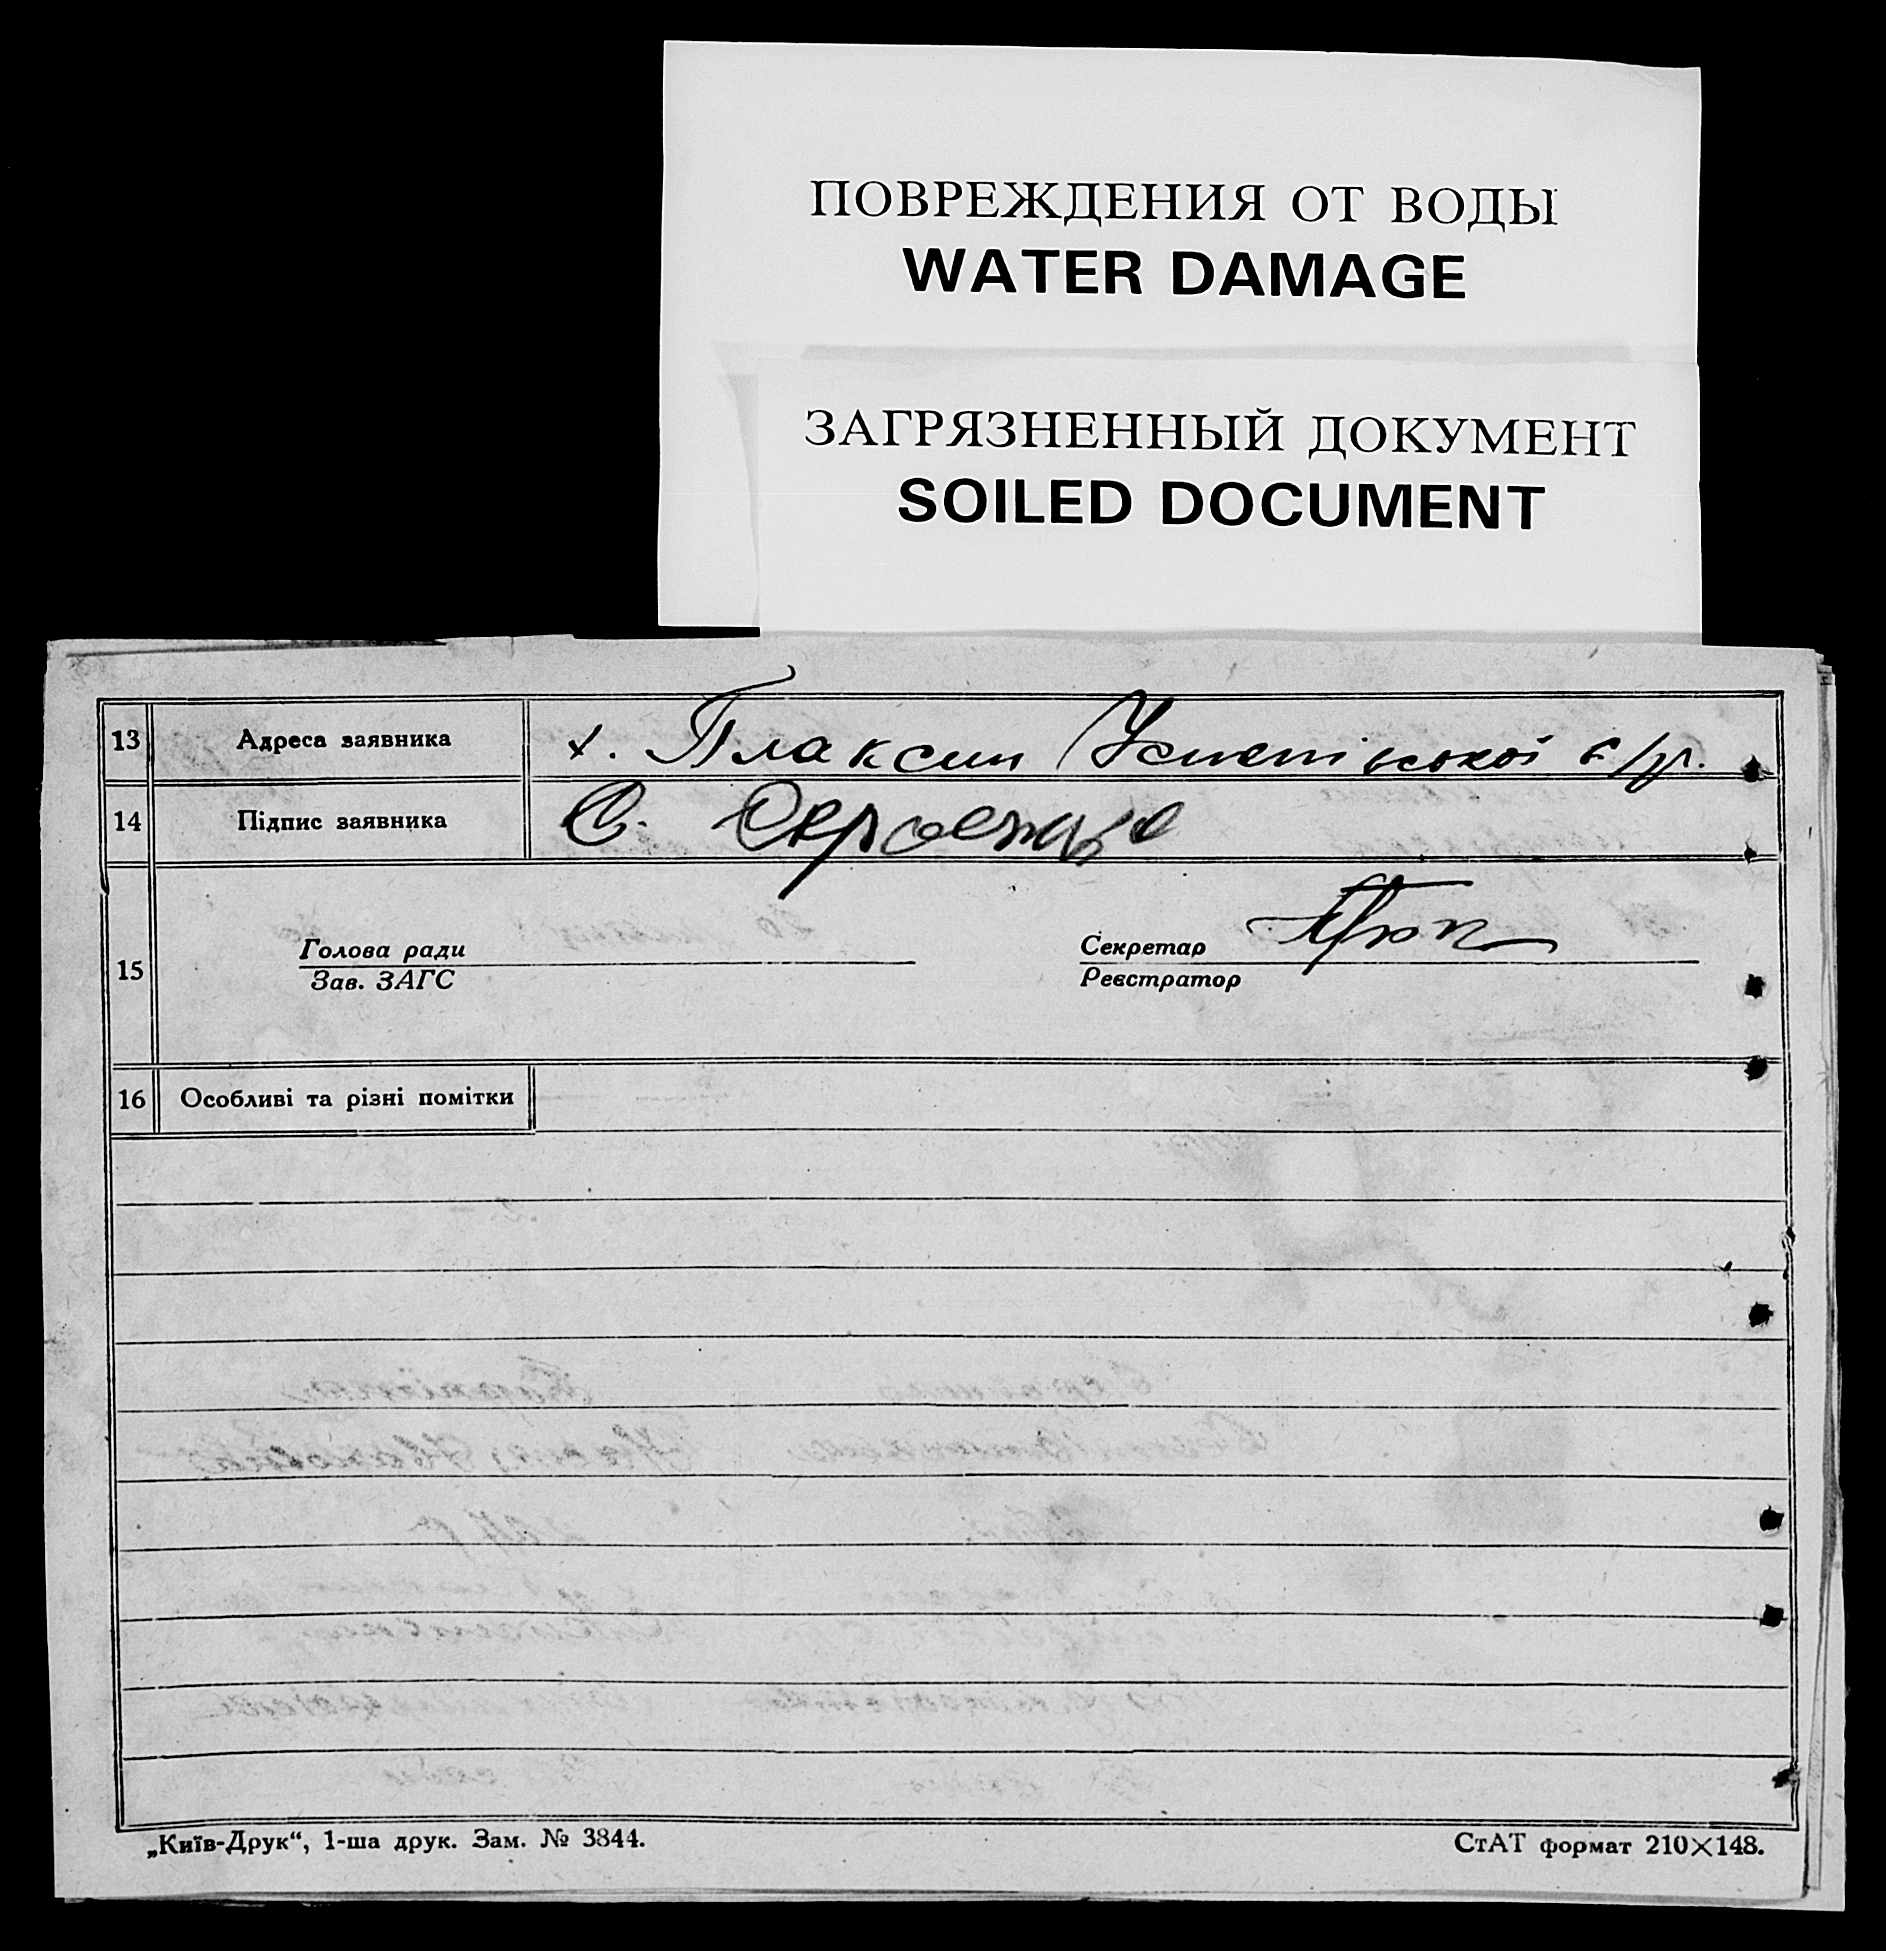 ПОВРЕЖДЕНИЯ ОТ ВОДЫ
WATER DAMAGE
ЗАГРЯЗНЕННЫЙ ДОКУМЕНТ
SOILED DOCUMENT
13 Адреса заявника х. Плаксин с/р.
14 Підпис заявника С.
15 Голова ради Секретар
Зав. ЗАГС Реєстратор
16 Особливі та різні помітки
„Київ-Друк“, 1-ша друк. Зам. № 3844. СтАТ формат 210×148.